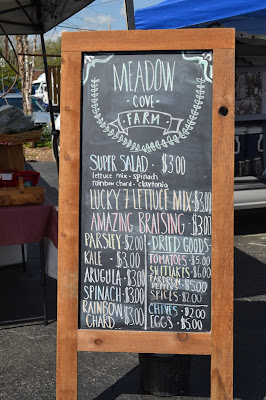 MEADOW
COVE
FARM
SUPER SALAD - $3.00
lettuce mix - spinach
rainbow chard - claytonia
LUCKY 7 LETTUCE MIX - $3.00
AMAZING BRAISING - $3.00
PARSLEY - $2.00
KALE - $3.00
ARUGULA - $3.00
SPINACH - $3.00
RAINBOW
CHARD - $3.00
- DRIED GOODS -
TOMATOES - $5.00
SHIITAKES - $6.00
PADRON
PEPPERS - $5.00
SPICES - $2.00
CHIVES - $2.00
EGGS - $5.00